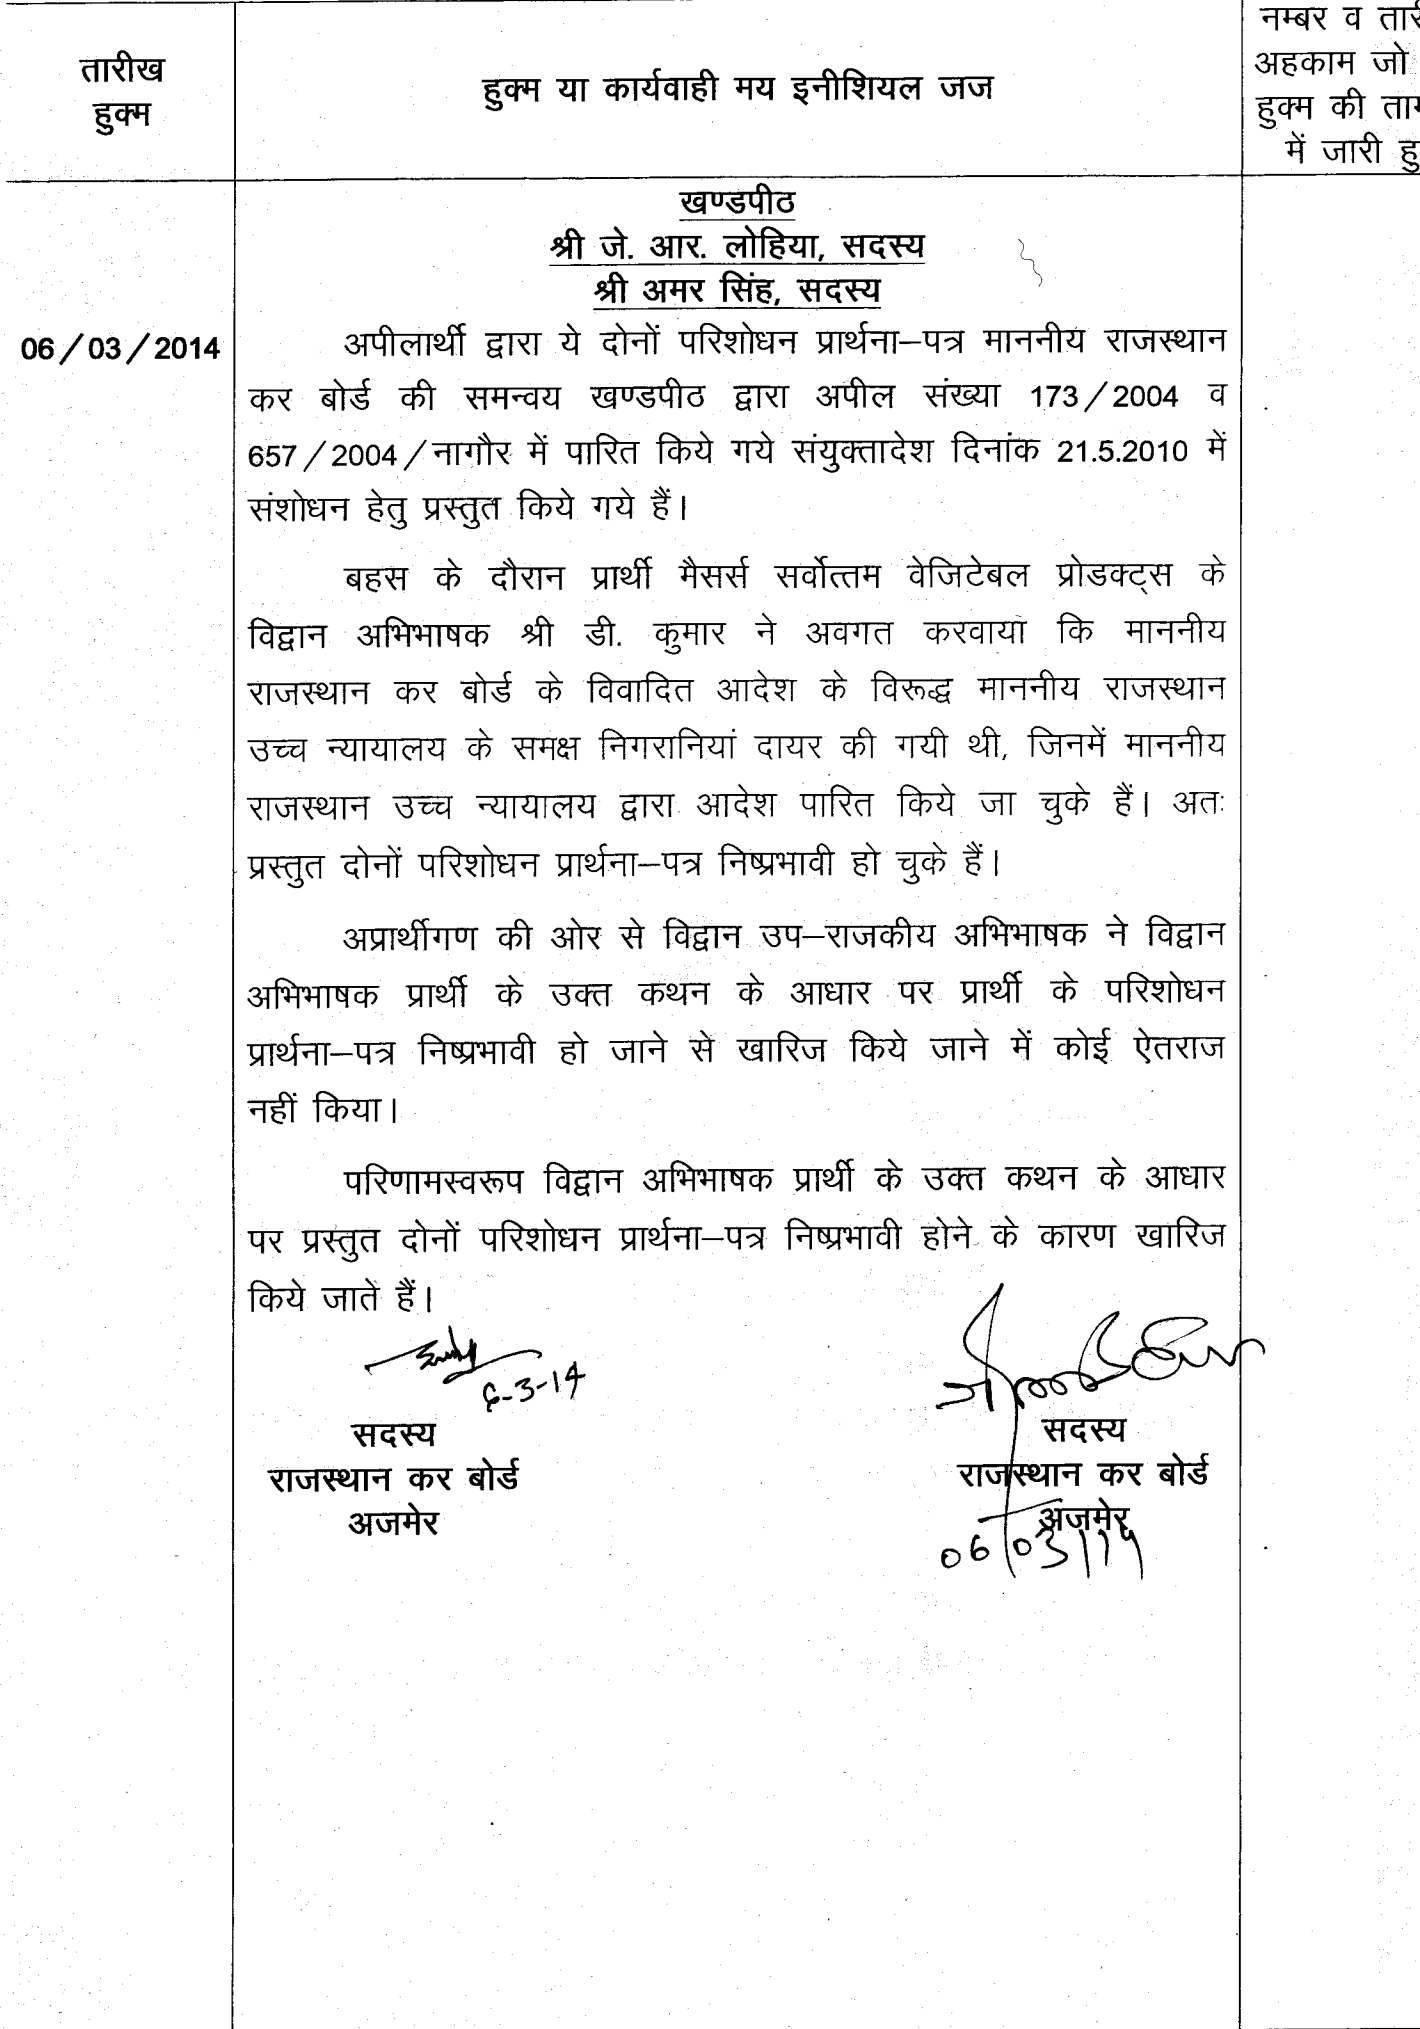 तारीख
हुक्म
हुक्म या कार्यवाही मय इनीशियल जज
नम्बर व
अहकाम जो
हुक्म की
में जारी
खण्डपीठ
श्री जे. आर. लोहिया, सदस्य
श्री अमर सिंह, सदस्य
06/03/2014
अपीलार्थी द्वारा ये दोनों परिशोधन प्रार्थना–पत्र माननीय राजस्थान
कर बोर्ड की समन्वय खण्डपीठ द्वारा अपील संख्या 173/2004 व
657/2004/नागौर में पारित किये गये संयुक्तादेश दिनांक 21.5.2010 में
संशोधन हेतु प्रस्तुत किये गये हैं।
बहस के दौरान प्रार्थी मैसर्स सर्वोत्तम वेजिटेबल प्रोडक्ट्स के
विद्वान अभिभाषक श्री डी. कुमार ने अवगत करवाया कि माननीय
राजस्थान कर बोर्ड के विवादित आदेश के विरूद्ध माननीय राजस्थान
उच्च न्यायालय के समक्ष निगरानियां दायर की गयी थी, जिनमें माननीय
राजस्थान उच्च न्यायालय द्वारा आदेश पारित किये जा चुके हैं। अतः
प्रस्तुत दोनों परिशोधन प्रार्थना–पत्र निष्प्रभावी हो चुके हैं।
अप्रार्थीगण की ओर से विद्वान उप–राजकीय अभिभाषक ने विद्वान
अभिभाषक प्रार्थी के उक्त कथन के आधार पर प्रार्थी के परिशोधन
प्रार्थना–पत्र निष्प्रभावी हो जाने से खारिज किये जाने में कोई ऐतराज
नहीं किया।
परिणामस्वरूप विद्वान अभिभाषक प्रार्थी के उक्त कथन के आधार
पर प्रस्तुत दोनों परिशोधन प्रार्थना–पत्र निष्प्रभावी होने के कारण खारिज
किये जाते हैं।
6-3-14
सदस्य
राजस्थान कर बोर्ड
अजमेर
सदस्य
राजस्थान कर बोर्ड
अजमेर
06/03/14